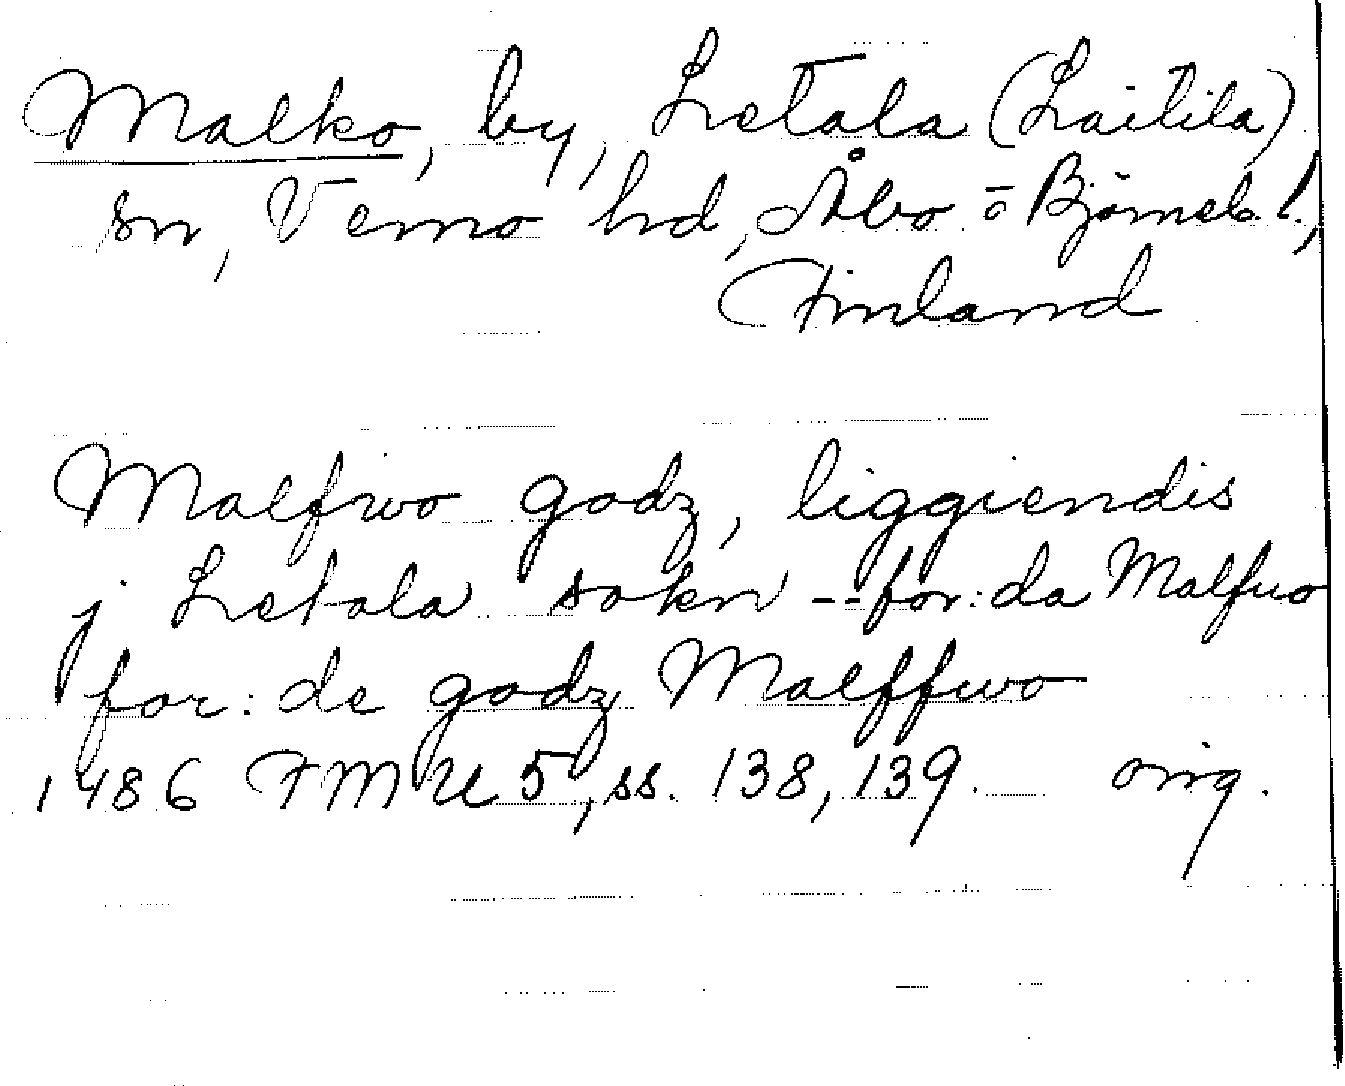 Malko, by, Letala (Laitila)
sn, Vemo hd, Åbo o Björneb. l.,
Finland
Malfwo godz, liggiendis
j Letala sokn -- for:da Malfwo
for:de godz Malffwo
1486 FMU 5, ss. 138, 139. orig.